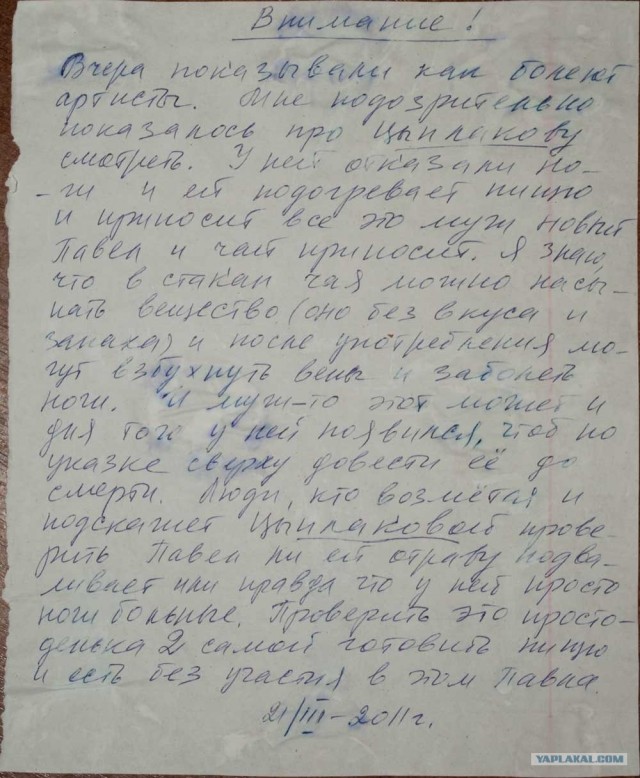 Внимание!
Вчера показывали как болеют
артисты. Мне подозрительно
показалось про Цыплакову
смотреть. У ней отказали но-
ги и ей подогревает пищю
и приносит всё это муж новый
Павел и чай приносит. Я знаю,
что в стакан чая можно насы-
пать вещество (оно без вкуса и
запаха) и после употребления мо-
гут взбухнуть вены и заболеть
ноги. И муж-то этот может и
для того у ней появился, чтоб по
указке сверху довести её до
смерти. Люди, кто возмётся и
подскажет Цыплаковой прове-
рить Павел ли ей отраву подва-
ливает или правда что у ней просто
ноги больные. Проверить это просто-
денька 2 самой готовить пищю
и есть без участия в этом Павла.
21/III-2011г.
YAPLAKAL.COM